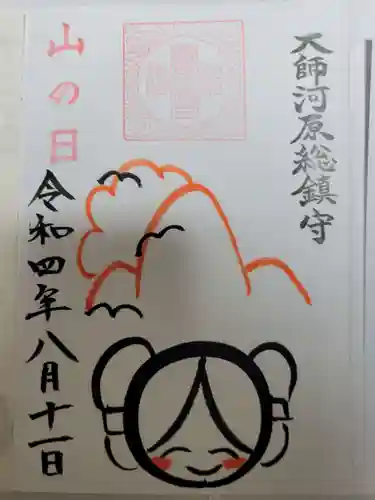 大師河原総鎮守
山の日
令和四年八月十一日